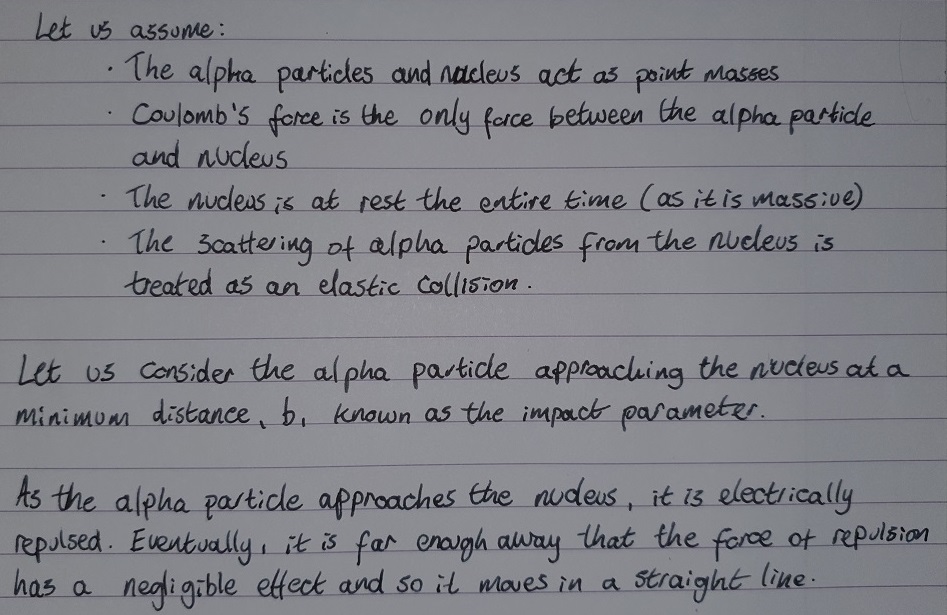 Let us assume:
· The alpha particles and nucleus act as point masses
· Coulomb's force is the only force between the alpha particle
and nucleus
· The nucleus is at rest the entire time (as it is massive)
· The scattering of alpha particles from the nucleus is
treated as an elastic collision.
Let us consider the alpha particle approaching the nucleus at a
minimum distance, b, known as the impact parameter.
As the alpha particle approaches the nucleus, it is electrically
repulsed. Eventually, it is far enough away that the force of repulsion
has a negligible effect and so it moves in a straight line.